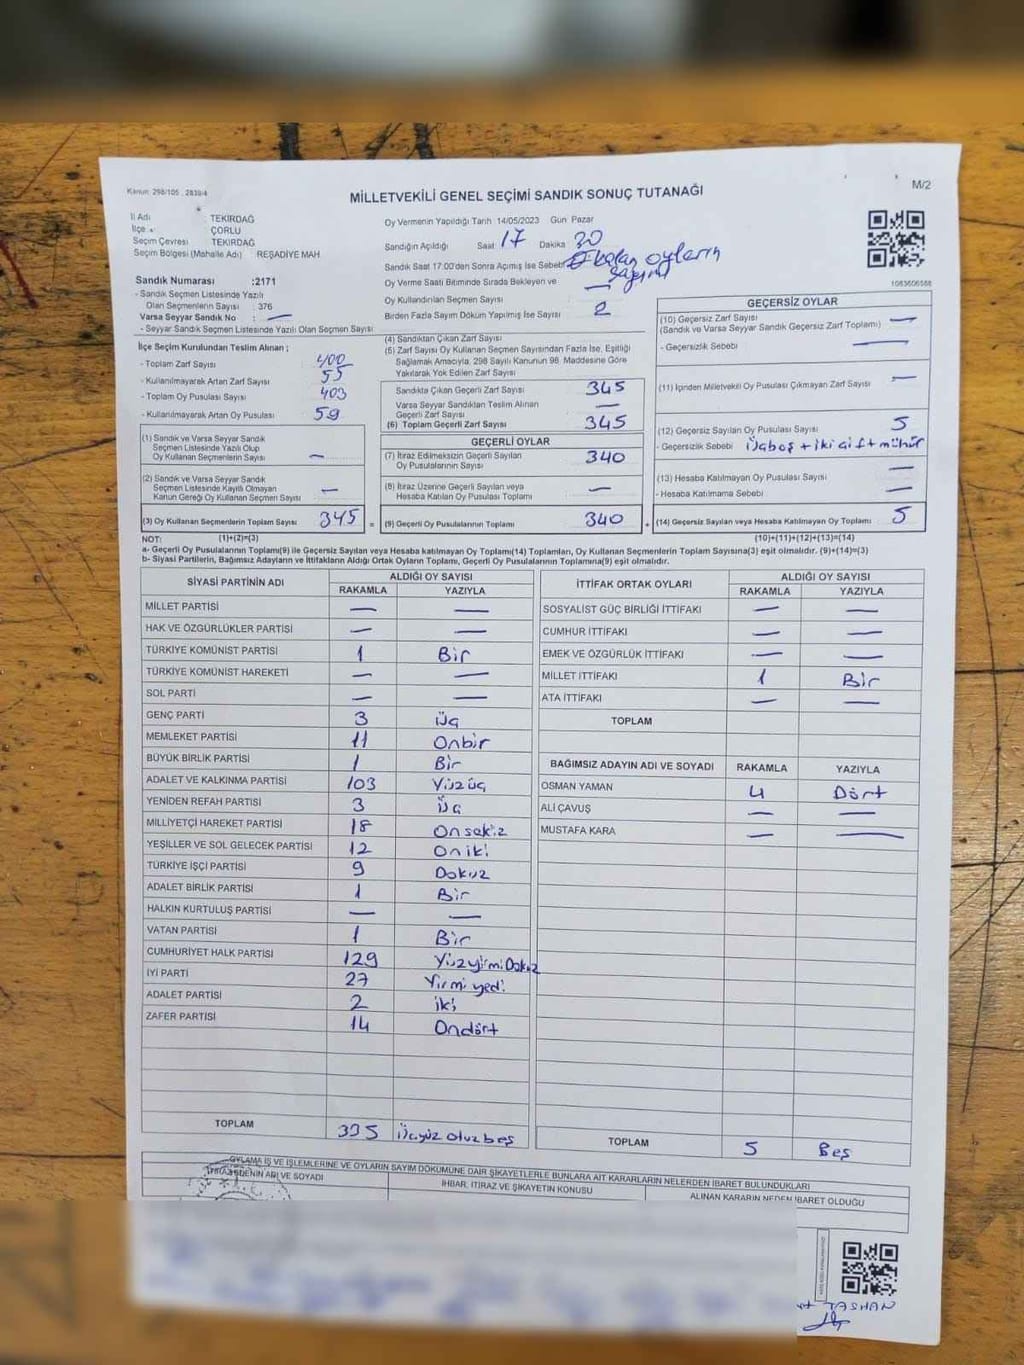 Kanun: 298/105, 2839/4
M/2
MİLLETVEKİLİ GENEL SEÇİMİ SANDIK SONUÇ TUTANAĞI
İl Adı : TEKİRDAĞ
İlçe : ÇORLU
Seçim Çevresi TEKİRDAĞ
Seçim Bölgesi (Mahalle Adı) : REŞADİYE MAH
Sandık Numarası :2171
- Sandık Seçmen Listesinde Yazılı
Olan Seçmenlerin Sayısı : 376
Varsa Seyyar Sandık No : —
- Seyyar Sandık Seçmen Listesinde Yazılı Olan Seçmen Sayısı
Oy Vermenin Yapıldığı Tarih 14/05/2023 Gün Pazar
Sandığın Açıldığı Saat 17 Dakika 30
Sandık Saat 17:00'den Sonra Açılmış İse Sebebi kalan oyların sayımı
Oy Verme Saati Bitiminde Sırada Bekleyen ve —
Oy Kullandırılan Seçmen Sayısı
Birden Fazla Sayım Döküm Yapılmış İse Sayısı 2
1083606588
İlçe Seçim Kurulundan Teslim Alınan ;
- Toplam Zarf Sayısı 400
- Kullanılmayarak Artan Zarf Sayısı 55
- Toplam Oy Pusulası Sayısı 403
- Kullanılmayarak Artan Oy Pusulası 59
(1) Sandık ve Varsa Seyyar Sandık
Seçmen Listesinde Yazılı Olup
Oy Kullanan Seçmenlerin Sayısı —
(2) Sandık ve Varsa Seyyar Sandık
Seçmen Listesinde Kayıtlı Olmayan
Kanun Gereği Oy Kullanan Seçmen Sayısı —
(3) Oy Kullanan Seçmenlerin Toplam Sayısı 345 =
(4) Sandıktan Çıkan Zarf Sayısı
(5) Zarf Sayısı Oy Kullanan Seçmen Sayısından Fazla İse, Eşitliği
Sağlamak Amacıyla, 298 Sayılı Kanunun 98. Maddesine Göre
Yakılarak Yok Edilen Zarf Sayısı
Sandıkta Çıkan Geçerli Zarf Sayısı 345
Varsa Seyyar Sandıktan Teslim Alınan
Geçerli Zarf Sayısı —
(6) Toplam Geçerli Zarf Sayısı 345
GEÇERLİ OYLAR
(7) İtiraz Edilmeksizin Geçerli Sayılan
Oy Pusulalarının Sayısı 340
(8) İtiraz Üzerine Geçerli Sayılan veya
Hesaba Katılan Oy Pusulası Toplamı —
(9) Geçerli Oy Pusulalarının Toplamı 340 +
GEÇERSİZ OYLAR
(10) Geçersiz Zarf Sayısı —
(Sandık ve Varsa Seyyar Sandık Geçersiz Zarf Toplamı)
- Geçersizlik Sebebi —
(11) İçinden Milletvekili Oy Pusulası Çıkmayan Zarf Sayısı —
(12) Geçersiz Sayılan Oy Pusulası Sayısı 5
- Geçersizlik Sebebi Üçboş + iki çift mühür
(13) Hesaba Katılmayan Oy Pusulası Sayısı —
- Hesaba Katılmama Sebebi —
(14) Geçersiz Sayılan veya Hesaba Katılmayan Oy Toplamı 5
NOT: (1)+(2)=(3) (10)+(11)+(12)+(13)=(14)
a- Geçerli Oy Pusulalarının Toplamı(9) ile Geçersiz Sayılan veya Hesaba katılmayan Oy Toplamı(14) Toplamları, Oy Kullanan Seçmenlerin Toplam Sayısına(3) eşit olmalıdır. (9)+(14)=(3)
b- Siyasi Partilerin, Bağımsız Adayların ve İttifakların Aldığı Ortak Oyların Toplamı, Geçerli Oy Pusulalarının Toplamına(9) eşit olmalıdır.
SİYASİ PARTİNİN ADI ALDIĞI OY SAYISI
RAKAMLA YAZIYLA
MİLLET PARTİSİ — —
HAK VE ÖZGÜRLÜKLER PARTİSİ — —
TÜRKİYE KOMÜNİST PARTİSİ 1 Bir
TÜRKİYE KOMÜNİST HAREKETİ — —
SOL PARTİ — —
GENÇ PARTİ 3 Üç
MEMLEKET PARTİSİ 11 Onbir
BÜYÜK BİRLİK PARTİSİ 1 Bir
ADALET VE KALKINMA PARTİSİ 103 Yüzüç
YENİDEN REFAH PARTİSİ 3 Üç
MİLLİYETÇİ HAREKET PARTİSİ 18 Onsekiz
YEŞİLLER VE SOL GELECEK PARTİSİ 12 Oniki
TÜRKİYE İŞÇİ PARTİSİ 9 Dokuz
ADALET BİRLİK PARTİSİ 1 Bir
HALKIN KURTULUŞ PARTİSİ — —
VATAN PARTİSİ 1 Bir
CUMHURİYET HALK PARTİSİ 129 Yüzyirmi Dokuz
İYİ PARTİ 27 Yirmi yedi
ADALET PARTİSİ 2 iki
ZAFER PARTİSİ 14 Ondört
TOPLAM 335 Üçyüz otuzbeş
İTTİFAK ORTAK OYLARI ALDIĞI OY SAYISI
RAKAMLA YAZIYLA
SOSYALİST GÜÇ BİRLİĞİ İTTİFAKI — —
CUMHUR İTTİFAKI — —
EMEK VE ÖZGÜRLÜK İTTİFAKI — —
MİLLET İTTİFAKI 1 Bir
ATA İTTİFAKI — —
TOPLAM
BAĞIMSIZ ADAYIN ADI VE SOYADI RAKAMLA YAZIYLA
OSMAN YAMAN 4 Dört
ALİ ÇAVUŞ — —
MUSTAFA KARA — —
TOPLAM 5 Beş
OYLAMA İŞ VE İŞLEMLERİNE VE OYLARIN SAYIM DÖKÜMÜNE DAİR ŞİKAYETLERLE BUNLARA AİT KARARLARIN NELERDEN İBARET BULUNDUKLARI
İTİRAZ EDENİN ADI VE SOYADI
İHBAR, İTİRAZ VE ŞİKAYETİN KONUSU
ALINAN KARARIN NEDEN İBARET OLDUĞU
TASHAN